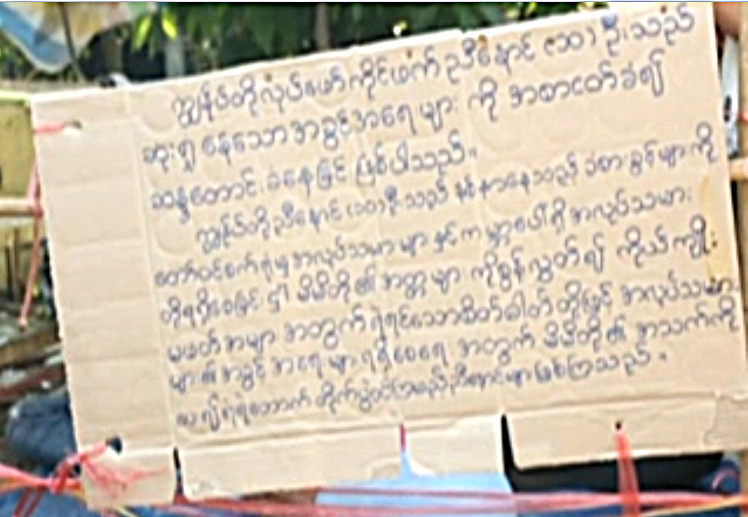 ကျွန်ုပ်တို့လုပ်ဖော်ကိုင်ဖက် ညီနောင် (၁၀) ဦးသည်
ဆုံးရှုံးနေသောအခွင့်အရေးများ ကို အစာငတ်ခံ၍
ဆန္ဒတောင်းခံနေခြင်း ဖြစ်ပါသည်။
ကျွန်ုပ်တို့ညီနောင် (၁၀) ဦးသည် နစ်နာနေသည့် ခံစားခွင့်များကို
အလုပ်သမားများ နှင့် ကမ္ဘာပေါ်ရှိ အလုပ်သမား
တို့ရရှိစေခြင်း ငှါ မိမိတို့၏ အတ္တများ ကိုစွန့်လွှတ်၍ ကိုယ်ကျိုး
မဖက် အများ အတွက် ရဲရင့်သောစိတ်ဓါတ်တို့ဖြင့် အလုပ်သမား
များ၏ အခွင့်အရေးများ ရရှိစေရေး အတွက် မိမိတို့၏ အသက်ကို
ပေး၍ ညီနောင်များဖြစ်ကြသည်။